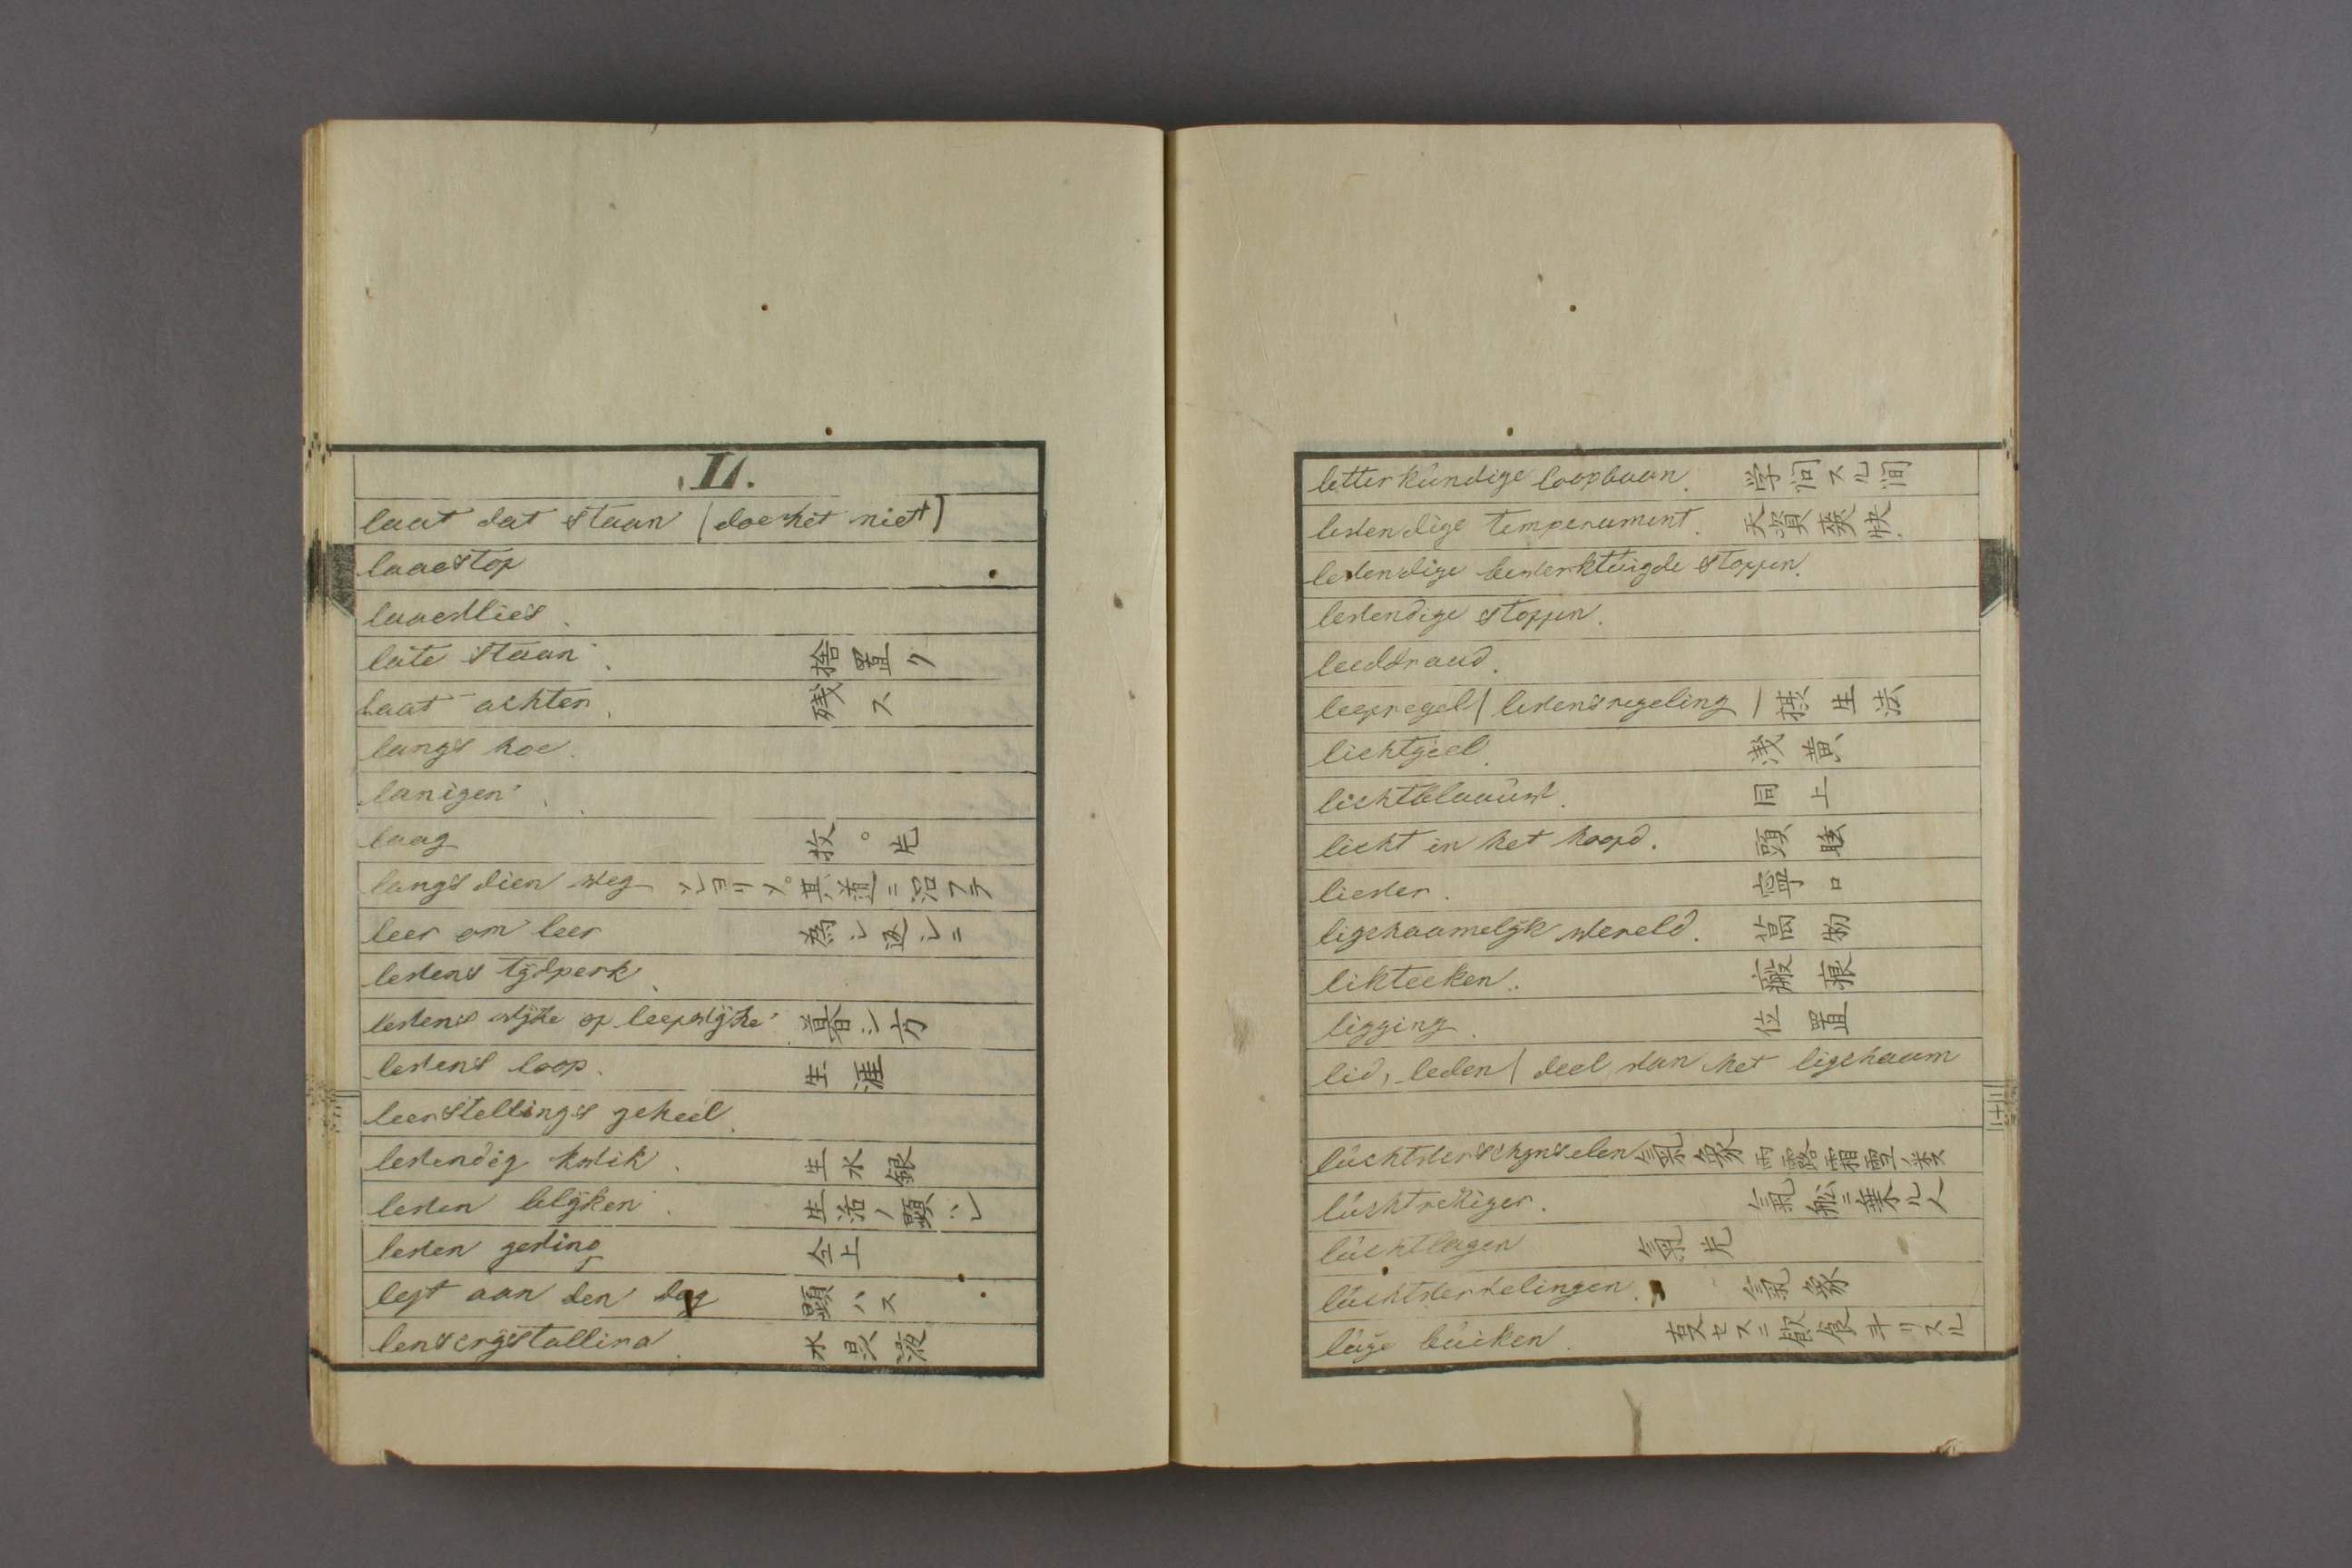 L.
laat dat staan (doe het niet)
laaestop
laaevlies.
late staan. 捨置ク
laat achter. 残ス
langs hoe.
lanigen.
laag 枚。片
langs dien weg ソレヨリ〆。其道ニ沿フテ
leer om leer 為シ返シニ
levens tijdperk.
levens wijze of leefwijze. 暮シ方
levens loop. 生涯
leerstellings geheel.
levendig kwik. 生水銀
leven blijken. 生活ノ顕ハレ
leven geving 仝上
legt aan den dag 顕ハス
lens crijstallina. 水晶液
letterkundige loopbaan. 学问スル间
levendige temperament. 天資爽快
levendige bewerktuigde stoffen.
levendige stoffen.
leeddraad.
leefregel / levensregeling 一摂生法
lichtgeel. 浅黄
lichtblaauw. 同上
licht in het hoofd. 頭眩
liever. 寧ロ
ligchaamelijk wereld. 万物
likteeken. 瘢痕
ligging. 位置
lid, leden / deel van het ligchaam
luchtverschijnselen 氣象 雨露霜雪ノ类
luchtreiziger. 氣舩ニ乗ル人
luchtlagen 氣片
luchtverhelingen. 氣象
luije buiken. 支セスニ飲食斗リスル
三十三